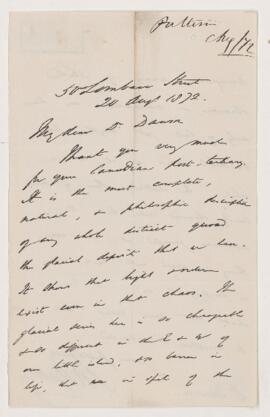 Aug/72
50 Lombard Street
20 Augt 1872.
My dear Dr Dawson
Thank you very much
for your Canadian post-tertiary.
It is the most complete,
natural, & philosophic description
of any whole district quoad
the glacial deposit that we have.
It shows that light & order
exist even in that chaos. The
glacial series here is so changeable
& so different in the E & W of
our little island, & so barren in
life, that now in spite of the